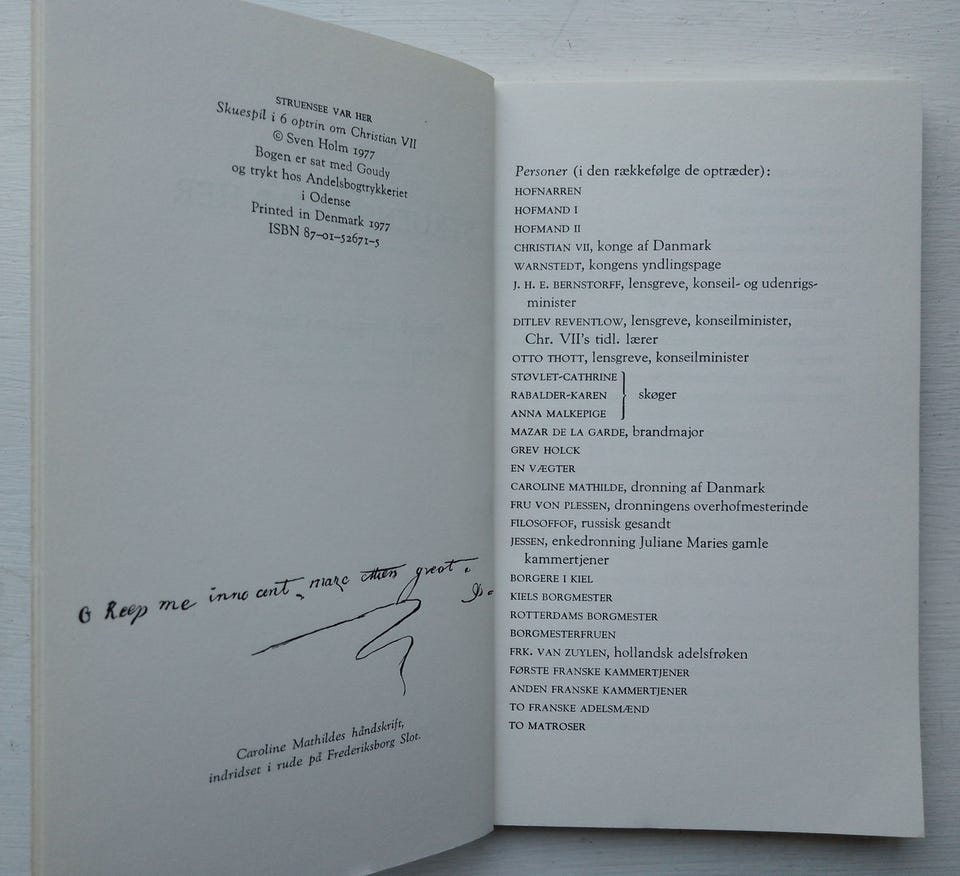 STRUENSEE VAR HER
Skuespil i 6 optrin om Christian VII
© Sven Holm 1977
Bogen er sat med Goudy
og trykt hos Andelsbogtrykkeriet
i Odense
Printed in Denmark 1977
ISBN 87-01-52671-5
O Keep me innocent, make others great.
Caroline Mathildes håndskrift,
indridset i rude på Frederiksborg Slot.
Personer (i den rækkefølge de optræder):
HOFNARREN
HOFMAND I
HOFMAND II
CHRISTIAN VII, konge af Danmark
WARNSTEDT, kongens yndlingspage
J. H. E. BERNSTORFF, lensgreve, konseil- og udenrigs-
minister
DITLEV REVENTLOW, lensgreve, konseilminister,
Chr. VII's tidl. lærer
OTTO THOTT, lensgreve, konseilminister
STØVLET-CATHRINE
RABALDER-KAREN } skøger
ANNA MALKEPIGE
MAZAR DE LA GARDE, brandmajor
GREV HOLCK
EN VÆGTER
CAROLINE MATHILDE, dronning af Danmark
FRU VON PLESSEN, dronningens overhofmesterinde
FILOSOFFOF, russisk gesandt
JESSEN, enkedronning Juliane Maries gamle
kammertjener
BORGERE I KIEL
KIELS BORGMESTER
ROTTERDAMS BORGMESTER
BORGMESTERFRUEN
FRK. VAN ZUYLEN, hollandsk adelsfrøken
FØRSTE FRANSKE KAMMERTJENER
ANDEN FRANSKE KAMMERTJENER
TO FRANSKE ADELSMÆND
TO MATROSER